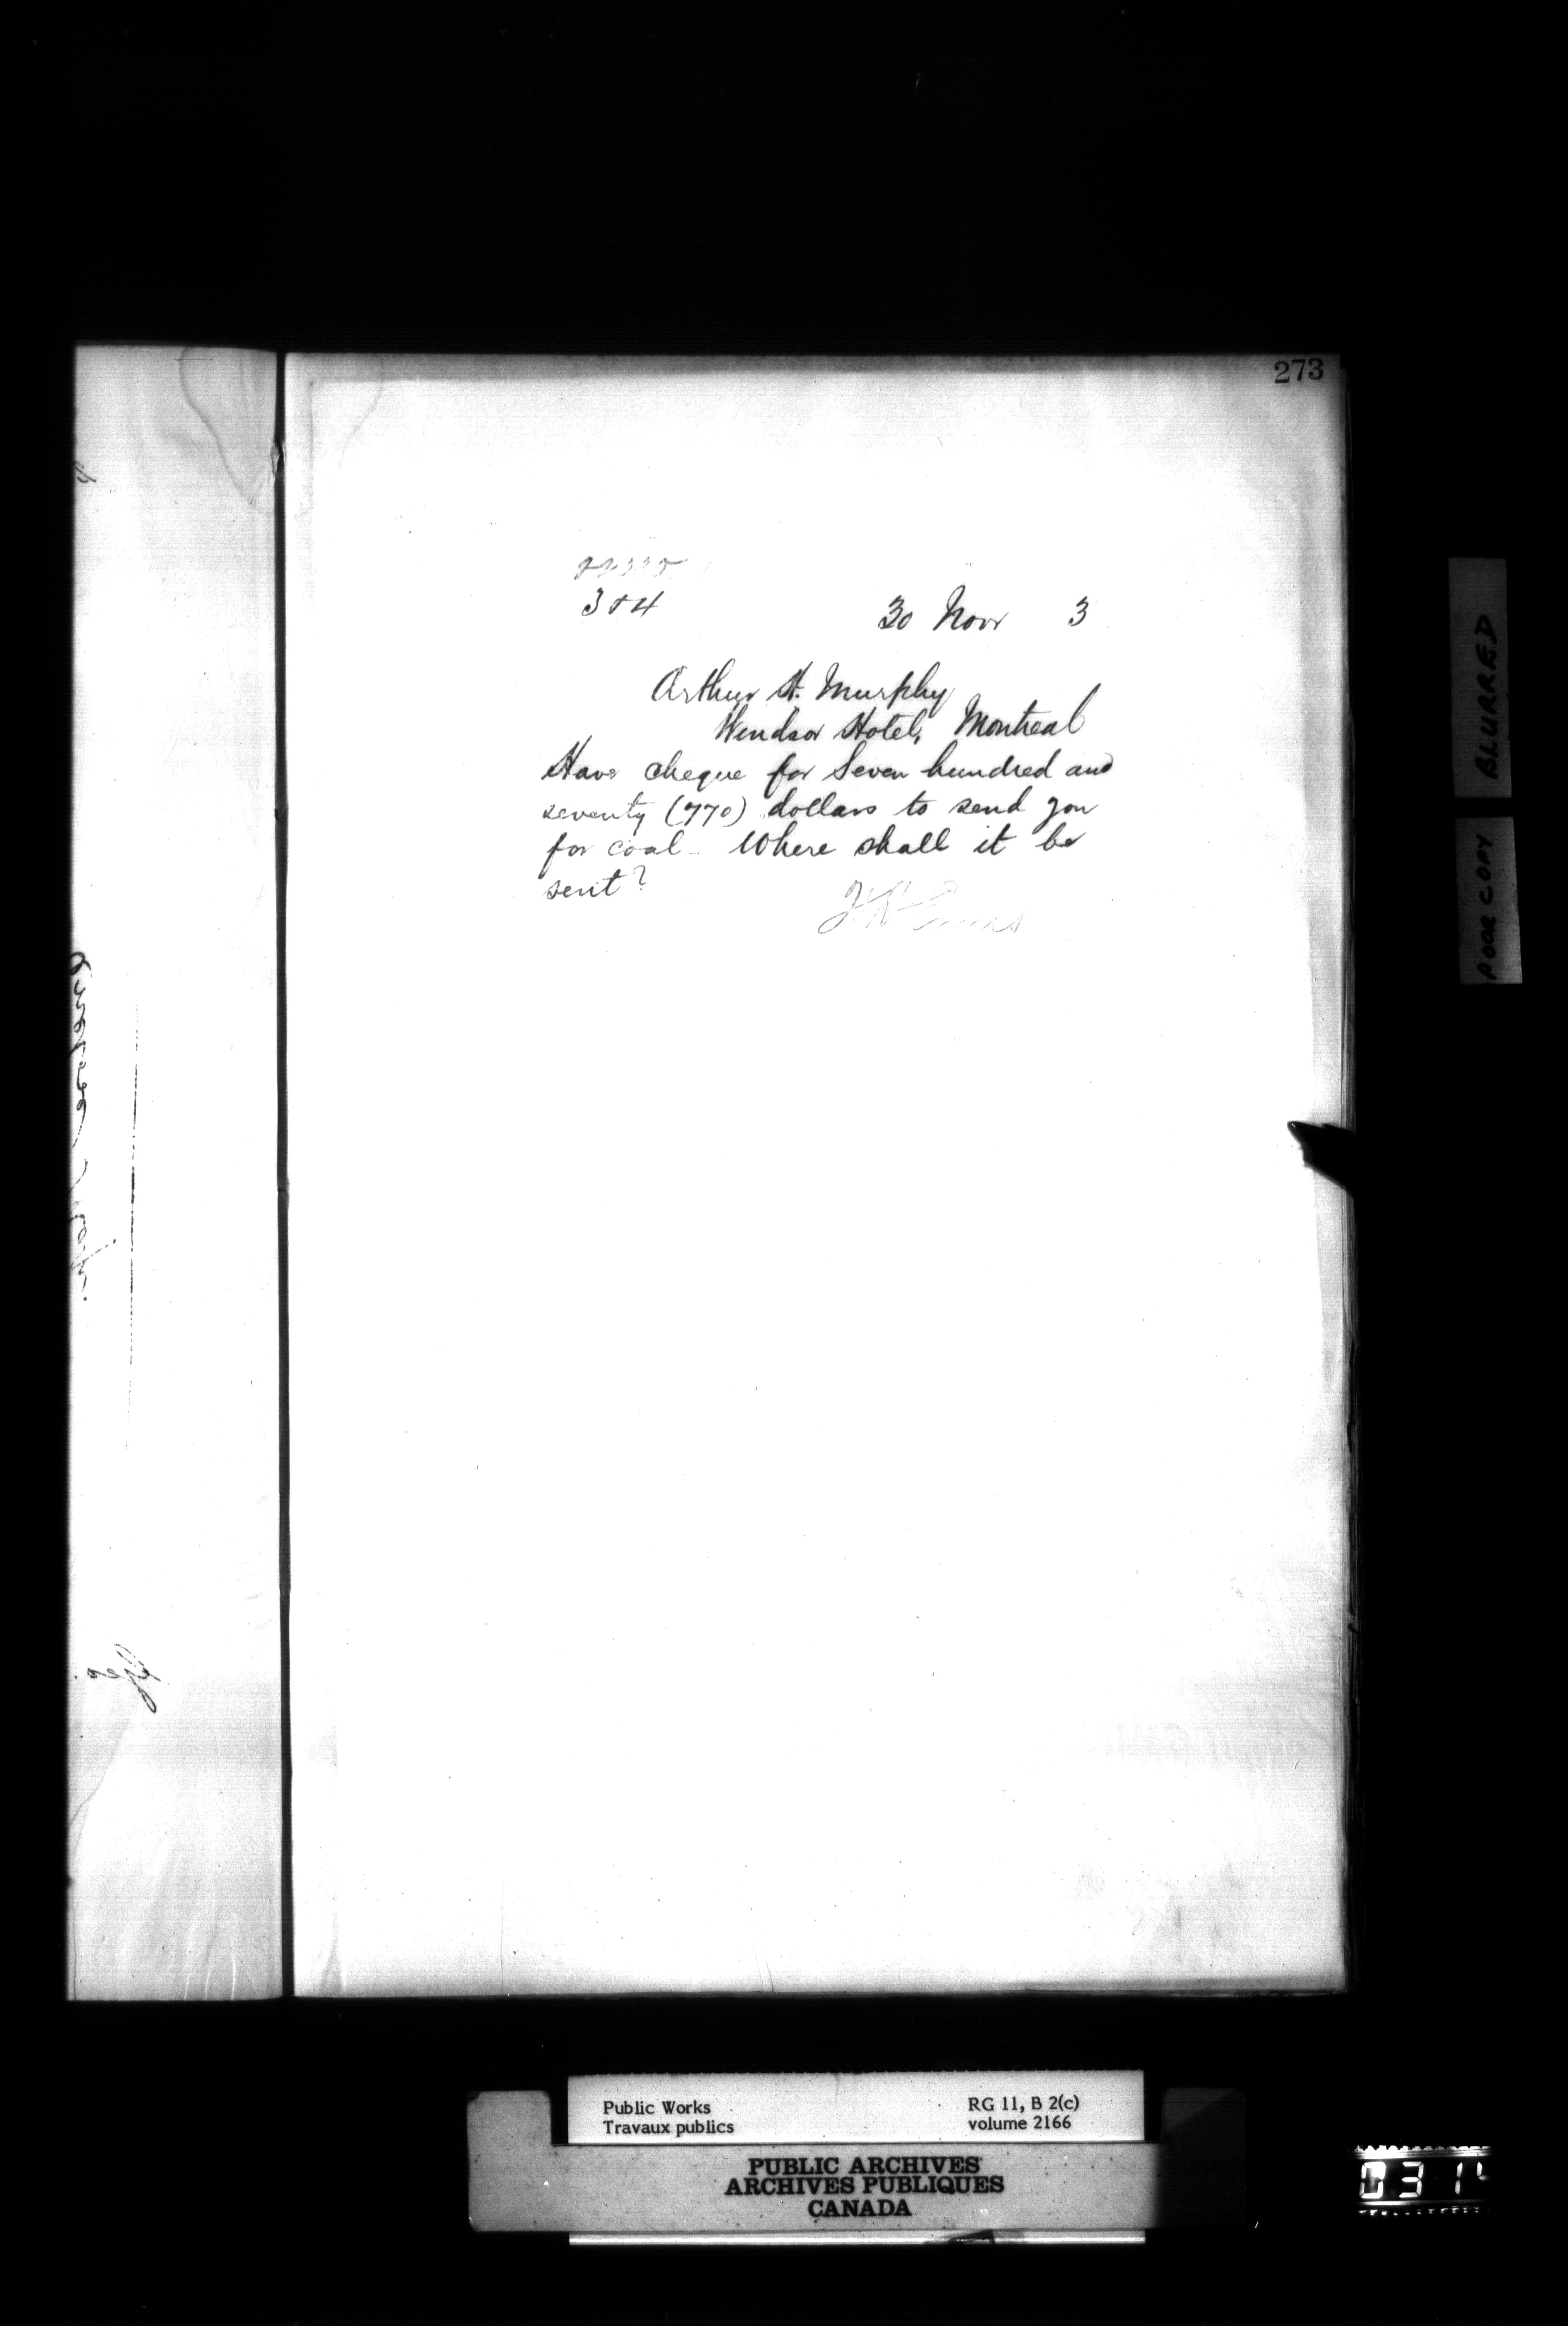 273
30 Novr 3
Arthur H. Murphy
Windsor Hotel, Montreal
Have cheque for Seven hundred and
seventy (770) dollars to send you
for coal. Where shall it be
sent?
BLURRED
POOR COPY
Public Works RG 11, B 2(c)
Travaux publics volume 2166
PUBLIC ARCHIVES
ARCHIVES PUBLIQUES
CANADA